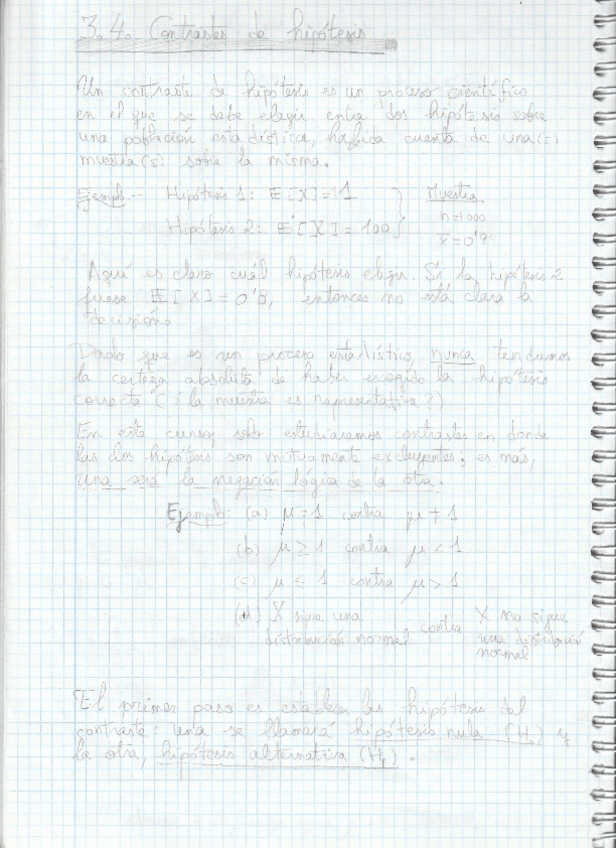 3.4. Contrastes de hipótesis
Un contraste de hipótesis es un proceso científico
en el que se debe elegir entre dos hipótesis sobre
una población estadística, habida cuenta de una(s)
muestra(s) sobre la misma.
Ejemplo.- Hipótesis 1: E[X]=1 Muestra
n=1000
Hipótesis 2: E[X]=100
x̄=0'9
Aquí es claro cuál hipótesis elegir. Si la hipótesis 2
fuese E[X]=0'8, entonces no está clara la
decisión.
Dado que es un proceso estadístico, nunca tendremos
la certeza absoluta de haber escogido la hipótesis
correcta (¿la muestra es representativa?)
En este curso, solo estudiaremos contrastes en donde
las dos hipótesis son mutuamente excluyentes; es más,
una será la negación lógica de la otra.
Ejemplo: (a) μ=1 contra μ≠1
(b) μ≥1 contra μ<1
(c) μ≤1 contra μ>1
(d) X sigue una distribución normal, contra X no sigue una distribución normal
El primer paso es establecer las hipótesis del
contraste: una se llamará hipótesis nula (H₀) y
la otra, hipótesis alternativa (H₁).